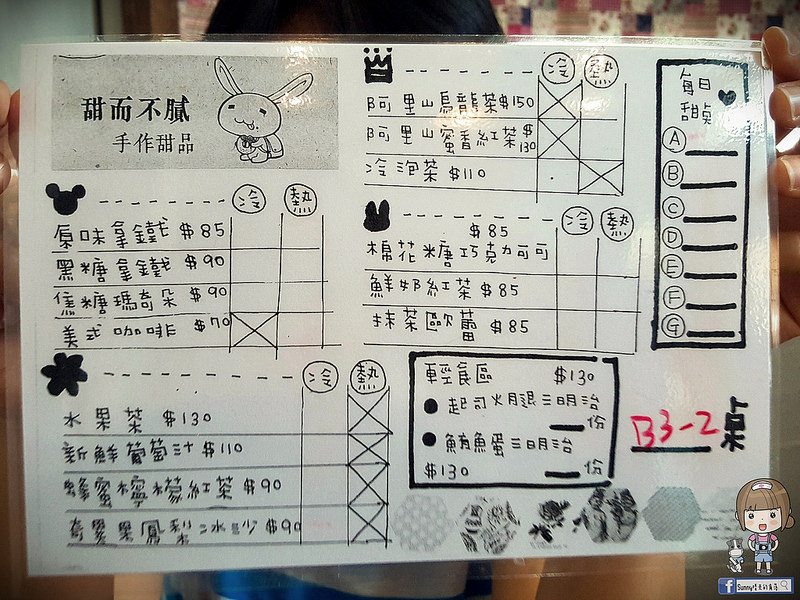 甜而不膩
手作甜品
冷 熱
原味拿鐵 $85
黑糖拿鐵 $90
焦糖瑪奇朵 $90
美式咖啡 $70
冷 熱
水果茶 $130
新鮮葡萄汁 $110
蜂蜜檸檬紅茶 $90
奇異果鳳梨冰沙 $90
冷 熱
阿里山烏龍茶 $150
阿里山蜜香紅茶 $130
冷泡茶 $110
冷 熱
$85
棉花糖巧克力可可
鮮奶紅茶 $85
抹茶歐蕾 $85
輕食區 $130
起司火腿三明治
份
鮪魚蛋三明治
$130 份
每日
甜點
A
B
C
D
E
F
G
B3-2 桌